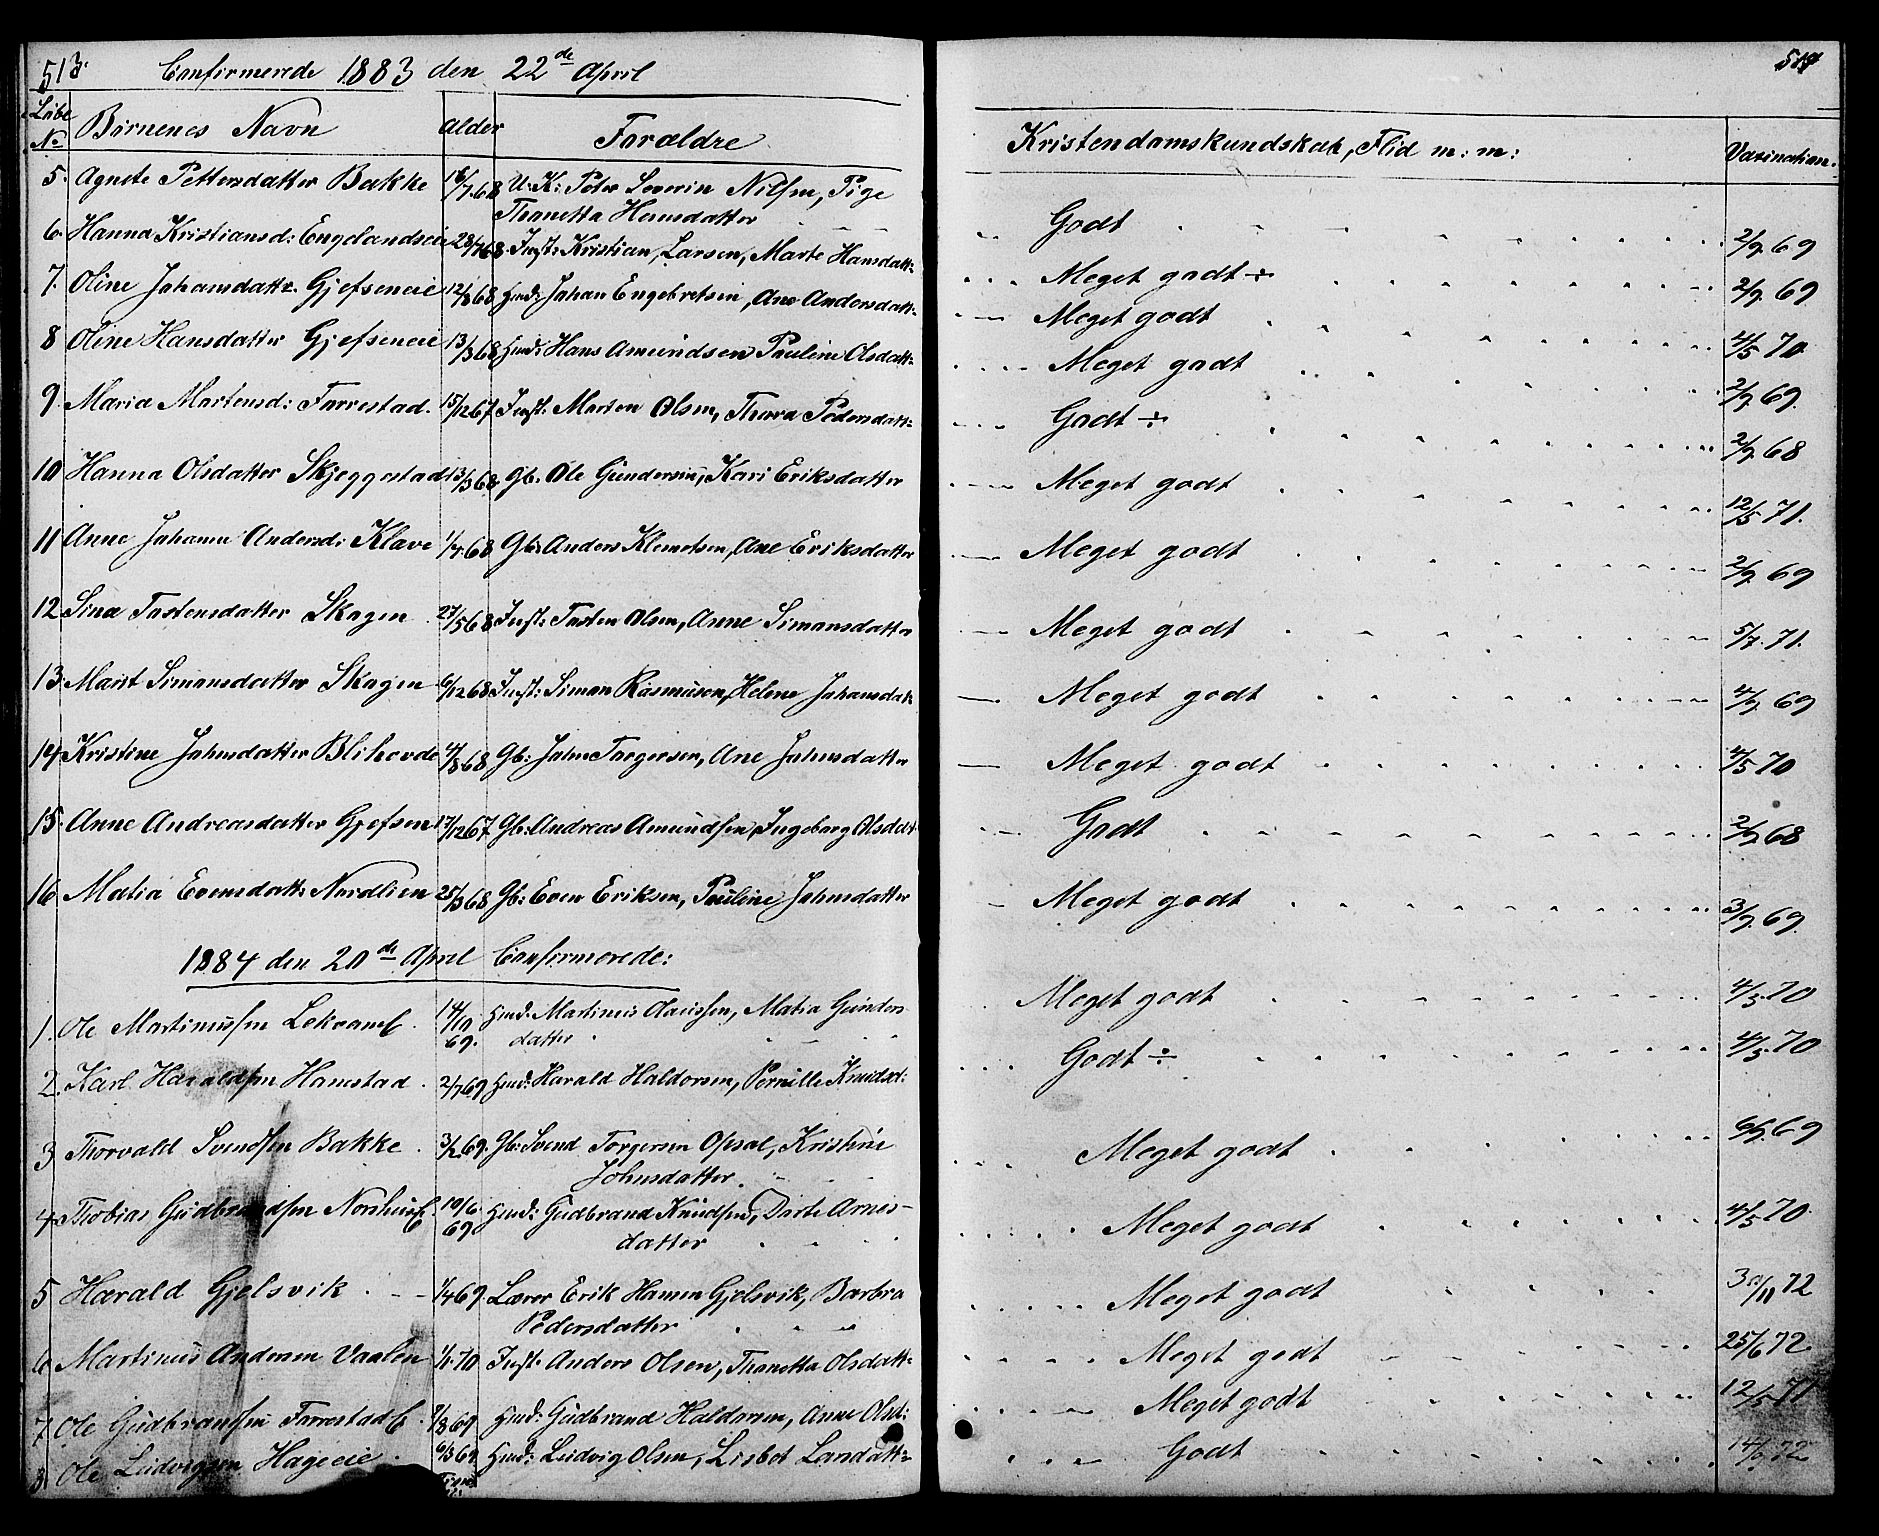 513. Confirmerede 1883 den 22de April
Löbe No Börnenes Navn Alder Forældre
5. Agnete Pettersdatter Bakke 16/7 68 U. K: Peter Severin Nilsen, Pige
Thonetta Hansdatter
6. Hanna Kristiansd: Engelandseie 28/4 68. Inst: Kristian Larsen, Marte Hansdatt:
7. Oline Johansdattr. Gjefseneie 12/8 68 Husd: Johan Engebretsen, Ane Andersdatt:
8 Oline Hansdatter Gjefseneie 13/3 68 Husd: Hans Amundsen Pauline Olsdatt:
9. Maria Martensd: Farrestad. 15/12 67 Inst: Marten Olsen, Thora Pedersdatt:
10 Hanna Olsdatter Skjeggestad 13/3 68 Gb. Ole Gundersen, Kari Eriksdatter
11 Anne Johanne Andersd: Klave 1/4 68 Gb: Anders Klemetsen, Ane Eriksdatter
12 Sina Tostensdatter Skogen 27/5 68 Inst: Tosten Olsen, Anne Simonsdatter
13. Marit Simonsdatter Skogen 6/12 68 Inst: Simon Rasmusen, Helene Johansdatt
14. Kristine Johnsdatter Blihovde 4/8 68 Gb: John Torgersen, Ane Johnsdatter
15. Anne Andreasdatter Gjefsen 17/12 67 Gb: Andreas Amundsen, Ingeborg Olsdat
16 Matia Evensdatt: Nordlien 25/3 68 Gb: Even Eriksen, Pauline Johnsdatter
1884 den 20de April Confirmerede:
1. Ole Martinussen 14/10 69. Husd: Martinus Olaussen, Matia Gunders
datter
2. Karl Haraldsen Hamstad 2/7 69 Husd: Harald Haldorsen, Pernille Knudsd:
3 Thorvald Svendsen Bakke 3/2 69. Gb: Svend Torgersen Opsal, Kristine
Johnsdatter.
4. Thobias Gudbrandsen 10/6 69. Husd: Gudbrand Knudsen, Dorte Arnes-
datter
5 Harald Gjelsvik 1/4 69 Lærer Erik Hansen Gjelsvik, Barbra
Pedersdatter
6 Martinus Andersen Vaalen 1/6 70 Inst. Anders Olsen, Thonetta Olsdatt:
7 Ole Gudbrandsen Farrestad 9/8 69 Husd: Gudbrand Haldorsen, Anne Olsd:
8. Ole Ludvigsen Hageeie 6/3 69 Husd: Ludvig Olsen, Lisbet Larsdatt:
514
Kristendomskundskab, Flid m: m: Vaxination.
Godt 2/9 69
Meget godt ÷ 2/9 69
Meget godt 4/5 70
Meget godt 2/9 69.
Godt ÷ 2/9 68
Meget godt 12/5 71.
Meget godt 2/9 69
Meget godt 5/7. 71.
Meget godt 4/9 69
Meget godt 4/5 70
Godt 2/9 68
Meget godt 3/9 69.
Meget godt 4/5 70
Godt ÷ 4/5 70
Meget godt 6/9 69
Meget godt 4/5 70
Meget godt 30/11 72
Meget godt 25/6 72.
Meget godt 12/5 71
Godt 14/9 72